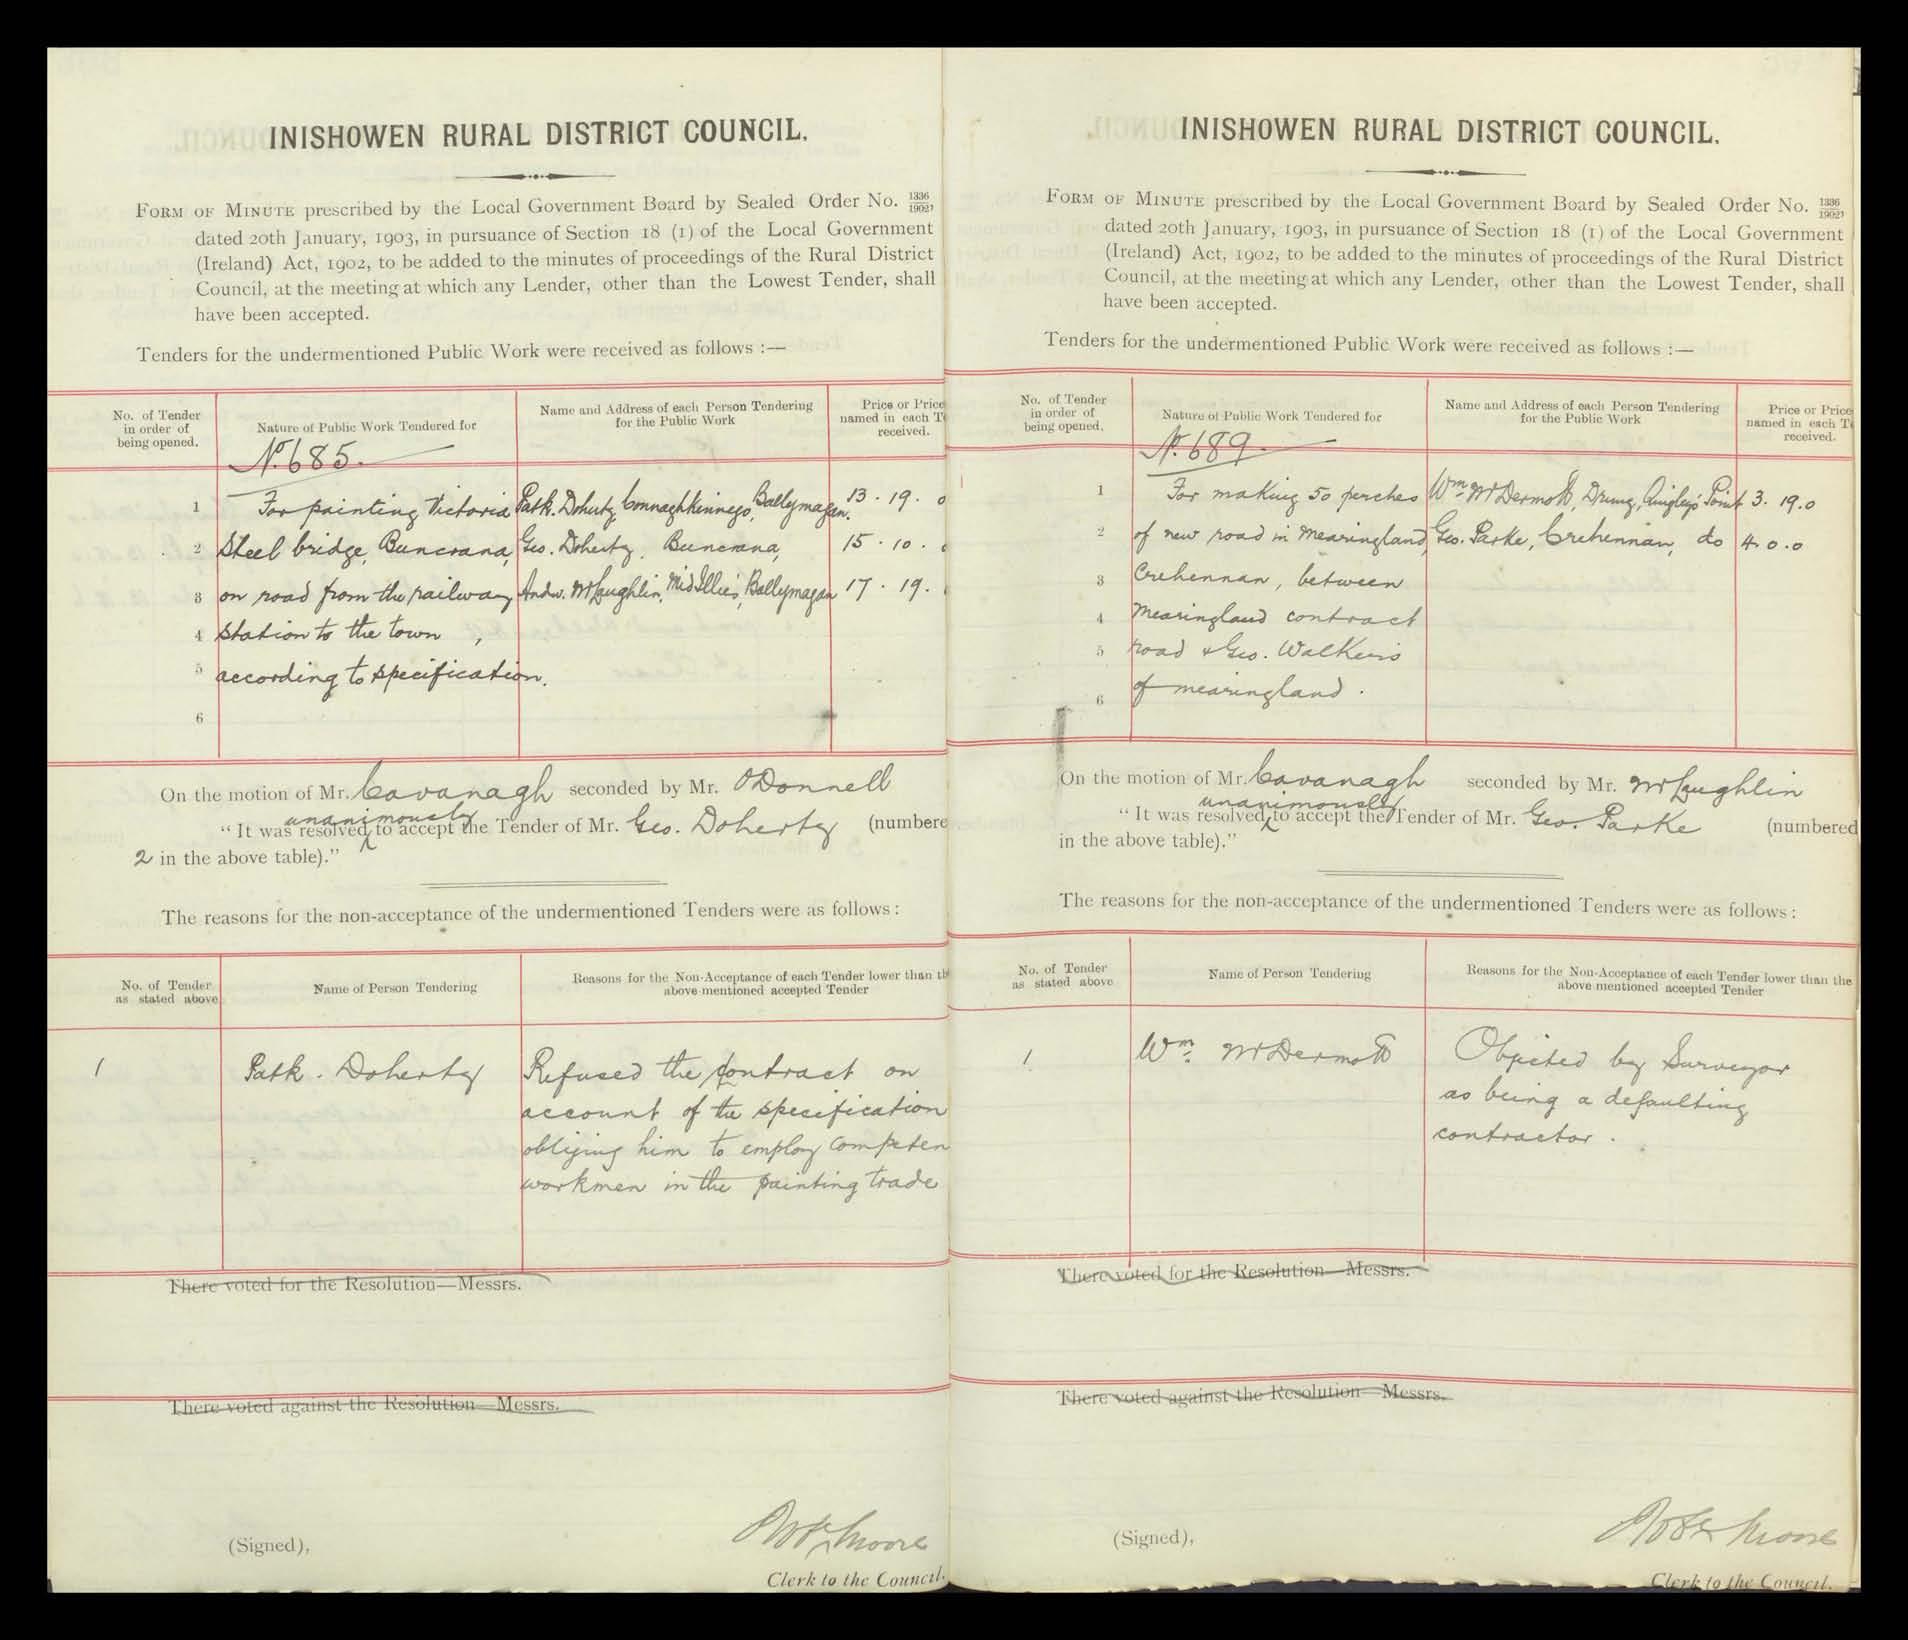 INISHOWEN RURAL DISTRICT COUNCIL.
FORM OF MINUTE prescribed by the Local Government Board by Sealed Order No. 1336/1902,
dated 20th January, 1903, in pursuance of Section 18 (1) of the Local Government
(Ireland) Act, 1902, to be added to the minutes of proceedings of the Rural District
Council, at the meeting at which any Lender, other than the Lowest Tender, shall
have been accepted.
Tenders for the undermentioned Public Work were received as follows :—
No. of Tender in order of being opened.
Nature of Public Work Tendered for
Name and Address of each Person Tendering for the Public Work
Price or Price named in each T received.
No. 685.
1 For painting Victoria Patk. Doherty, Connaghkinnego, Ballymagan. 13 . 19 . 0
2 Steel bridge, Buncrana, Geo. Doherty, Buncrana, 15 . 10 .
3 on road from the railway Andw. McLaughlin, Mid Illies, Ballymagan 17 . 19 .
4 station to the town ,
5 according to specification.
6
On the motion of Mr. Cavanagh seconded by Mr. O'Donnell
unanimously
“It was resolved to accept the Tender of Mr. Geo. Doherty (numbere
2 in the above table).”
The reasons for the non-acceptance of the undermentioned Tenders were as follows :
No. of Tender as stated above
Name of Person Tendering
Reasons for the Non-Acceptance of each Tender lower than th above-mentioned accepted Tender
1 Patk. Doherty Refused the contract on
account of the specification
obliging him to employ competen
workmen in the painting trade
There voted for the Resolution—Messrs.
There voted against the Resolution—Messrs.
(Signed), Robt Moore
Clerk to the Council.
INISHOWEN RURAL DISTRICT COUNCIL.
FORM OF MINUTE prescribed by the Local Government Board by Sealed Order No. 1336/1902,
dated 20th January, 1903, in pursuance of Section 18 (1) of the Local Government
(Ireland) Act, 1902, to be added to the minutes of proceedings of the Rural District
Council, at the meeting at which any Lender, other than the Lowest Tender, shall
have been accepted.
Tenders for the undermentioned Public Work were received as follows :—
No. of Tender in order of being opened.
Nature of Public Work Tendered for
Name and Address of each Person Tendering for the Public Work
Price or Price named in each Te received.
No. 689.
1 For making 50 perches Wm McDermott, Drung, Quigley's Point 3 . 19 . 0
2 of new road in Mearingland, Geo. Parke, Crehennan, do 4 . 0 . 0
3 Crehennan, between
4 Mearingland contract
5 road & Geo. Walker's
6 of mearingland .
On the motion of Mr. Cavanagh seconded by Mr. McLaughlin
unanimously
“It was resolved to accept the Tender of Mr. Geo. Parke (numbered
in the above table).”
The reasons for the non-acceptance of the undermentioned Tenders were as follows :
No. of Tender as stated above
Name of Person Tendering
Reasons for the Non-Acceptance of each Tender lower than the above mentioned accepted Tender
1 Wm McDermott Objected by Surveyor
as being a defaulting
contractor .
There voted for the Resolution—Messrs.
There voted against the Resolution—Messrs.
(Signed), Robt Moore
Clerk to the Council.